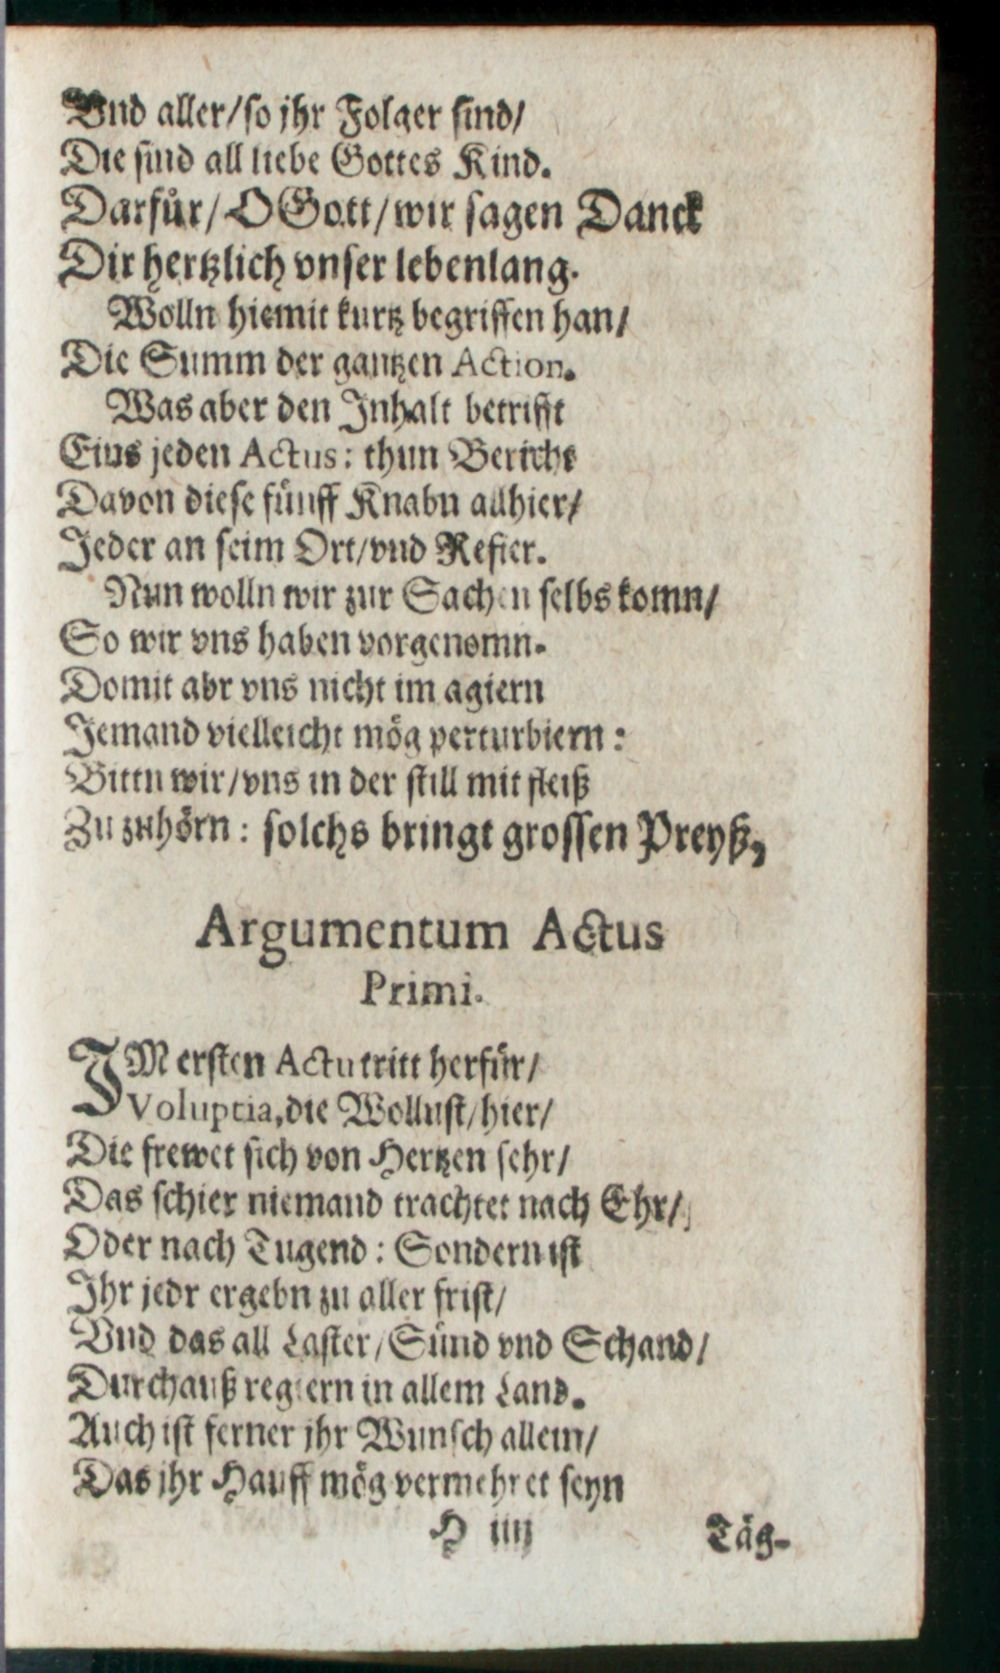 Vnd aller/so jhr Folger sind/
Die sind all liebe Gottes Kind.
Darfür/O Gott/wir sagen Danck
Dir hertzlich vnser lebenlang.
Wolln hiemit kurtz begriffen han/
Die Summ der gantzen Action.
Was aber den Inhalt betrifft
Eins jeden Actus: thun Bericht
Davon diese fünff Knabn allhier/
Jeder an seim Ort/vnd Refier.
Nun wolln wir zur Sachen selbs komn/
So wir vns haben vorgenomn.
Domit abr vns nicht im agiern
Jemand vielleicht mög perturbiern:
Bittn wir/vns in der still mit fleiß
Zu zuhörn: solchs bringt grossen Preyß,
Argumentum Actus
Primi.
IM ersten Actu tritt herfür/
Voluptia, die Wollust/hier/
Die frewet sich von Hertzen sehr/
Das schier niemand trachtet nach Ehr/
Oder nach Tugend: Sondern ist
Ihr jedr ergebn zu aller frist/
Vnd das all Laster/Sünd vnd Schand/
Durchauß regiern in allem Land.
Auch ist ferner jhr Wunsch allein/
Das jhr Hauff mög vermehret seyn
H iiij
Täg-